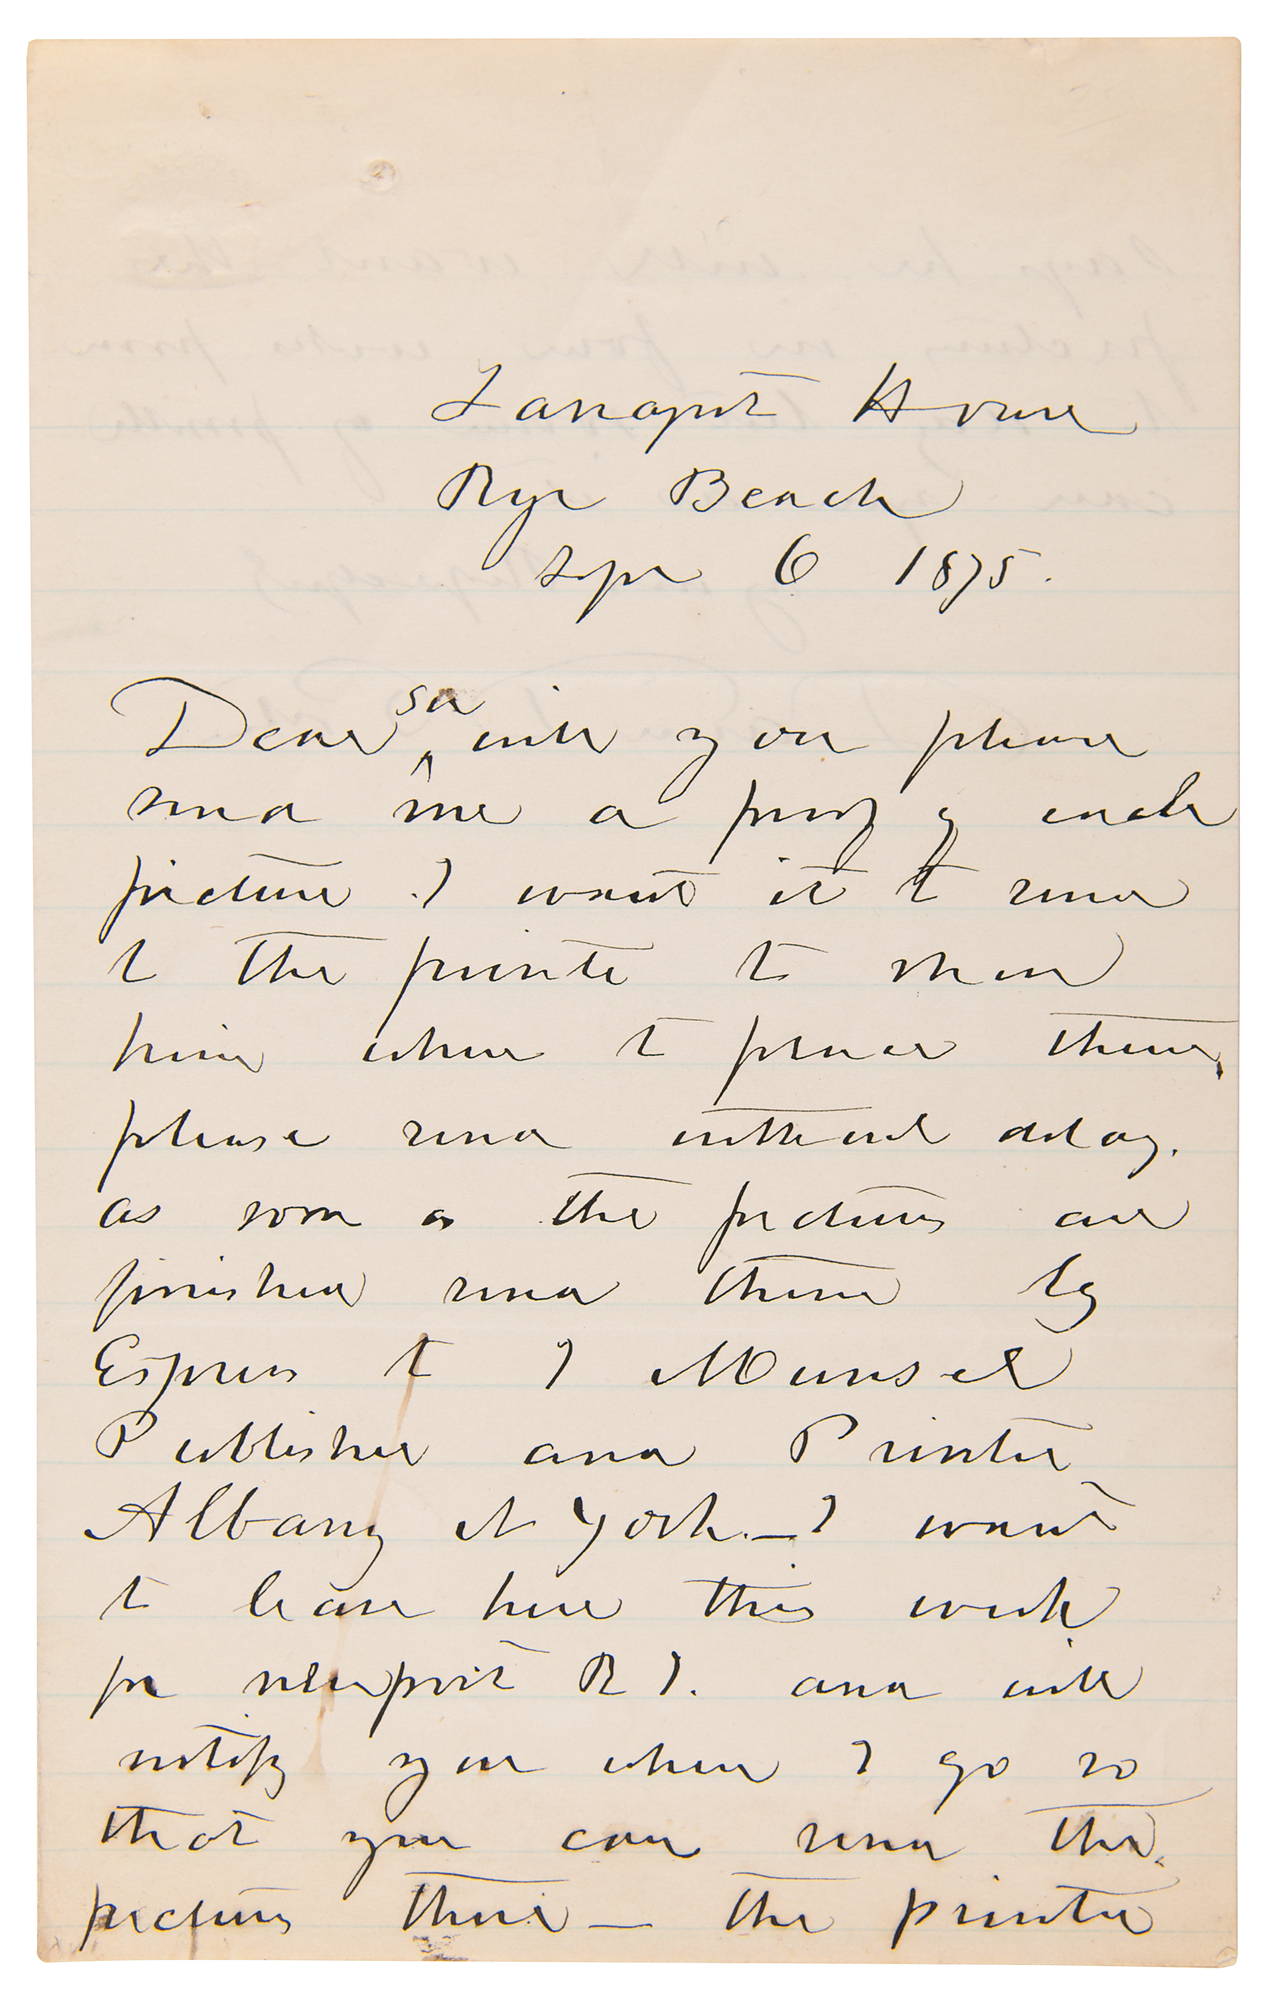 Farragut House
Rye Beach
Sepr 6 1875.
Dear Sir will you please
send me a proof of each
picture. I want it to send
to the printer to show
him where to place them,
please send without delay.
as soon as the pictures are
finished send them by
Express to J Munsel
Publisher and Printer
Albany N York – I want
to leave here this week
for newport R I. and will
notify you when I go so
that you can send the
pictures there – the printer